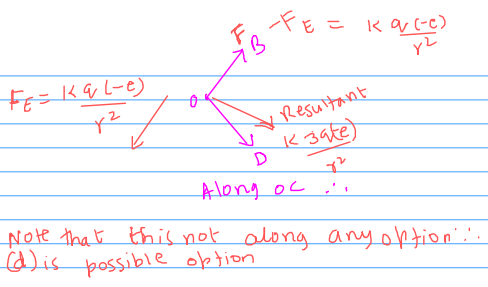 F -F_E = k q (-e) / r²
B
F_E = k q (-e) / r²
O
Resultant
k 3q(e) / r²
D
Along OC ∴
Note that this not along any option ∵
(d) is possible option